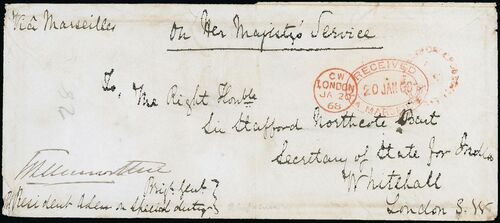 Via Marseilles
On Her Majesty's Service
CW
LONDON
JA 20
68
RECEIVED
20 JAN 68
To,
The Right Honble
Sir Stafford Northcote Bart
Secretary of State for India
Whitehall
London S.W.
Brigr Genl
Resident Aden on Special duty